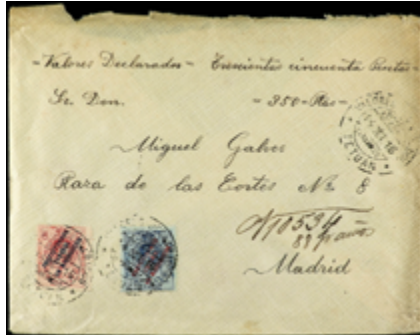 = Valores Declarados = Trescientas cincuenta Pesetas =
Sr. Don. = 350 = Pts =
Miguel Galves
Plaza de las Cortes No 8
No 10534
Madrid
TETUAN